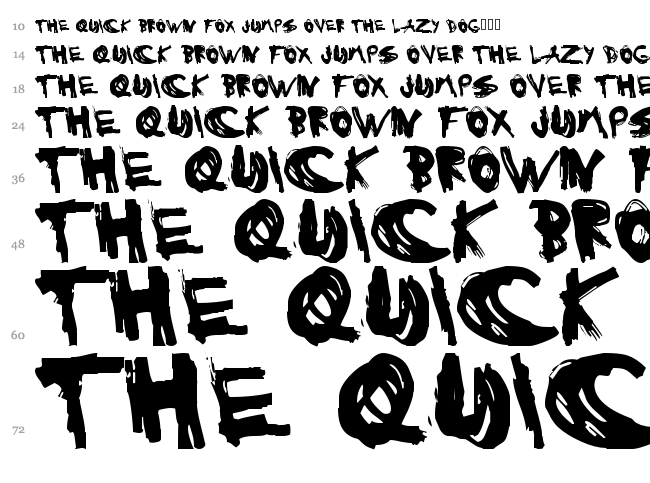 10 THE QUICK BROWN FOX JUMPS OVER THE LAZY DOG
14 THE QUICK BROWN FOX JUMPS OVER THE LAZY DOG
18 THE QUICK BROWN FOX JUMPS OVER THE
24 THE QUICK BROWN FOX JUMPS
36 THE QUICK BROWN
48 THE QUICK BRO
60 THE QUICK
72 THE QUIC